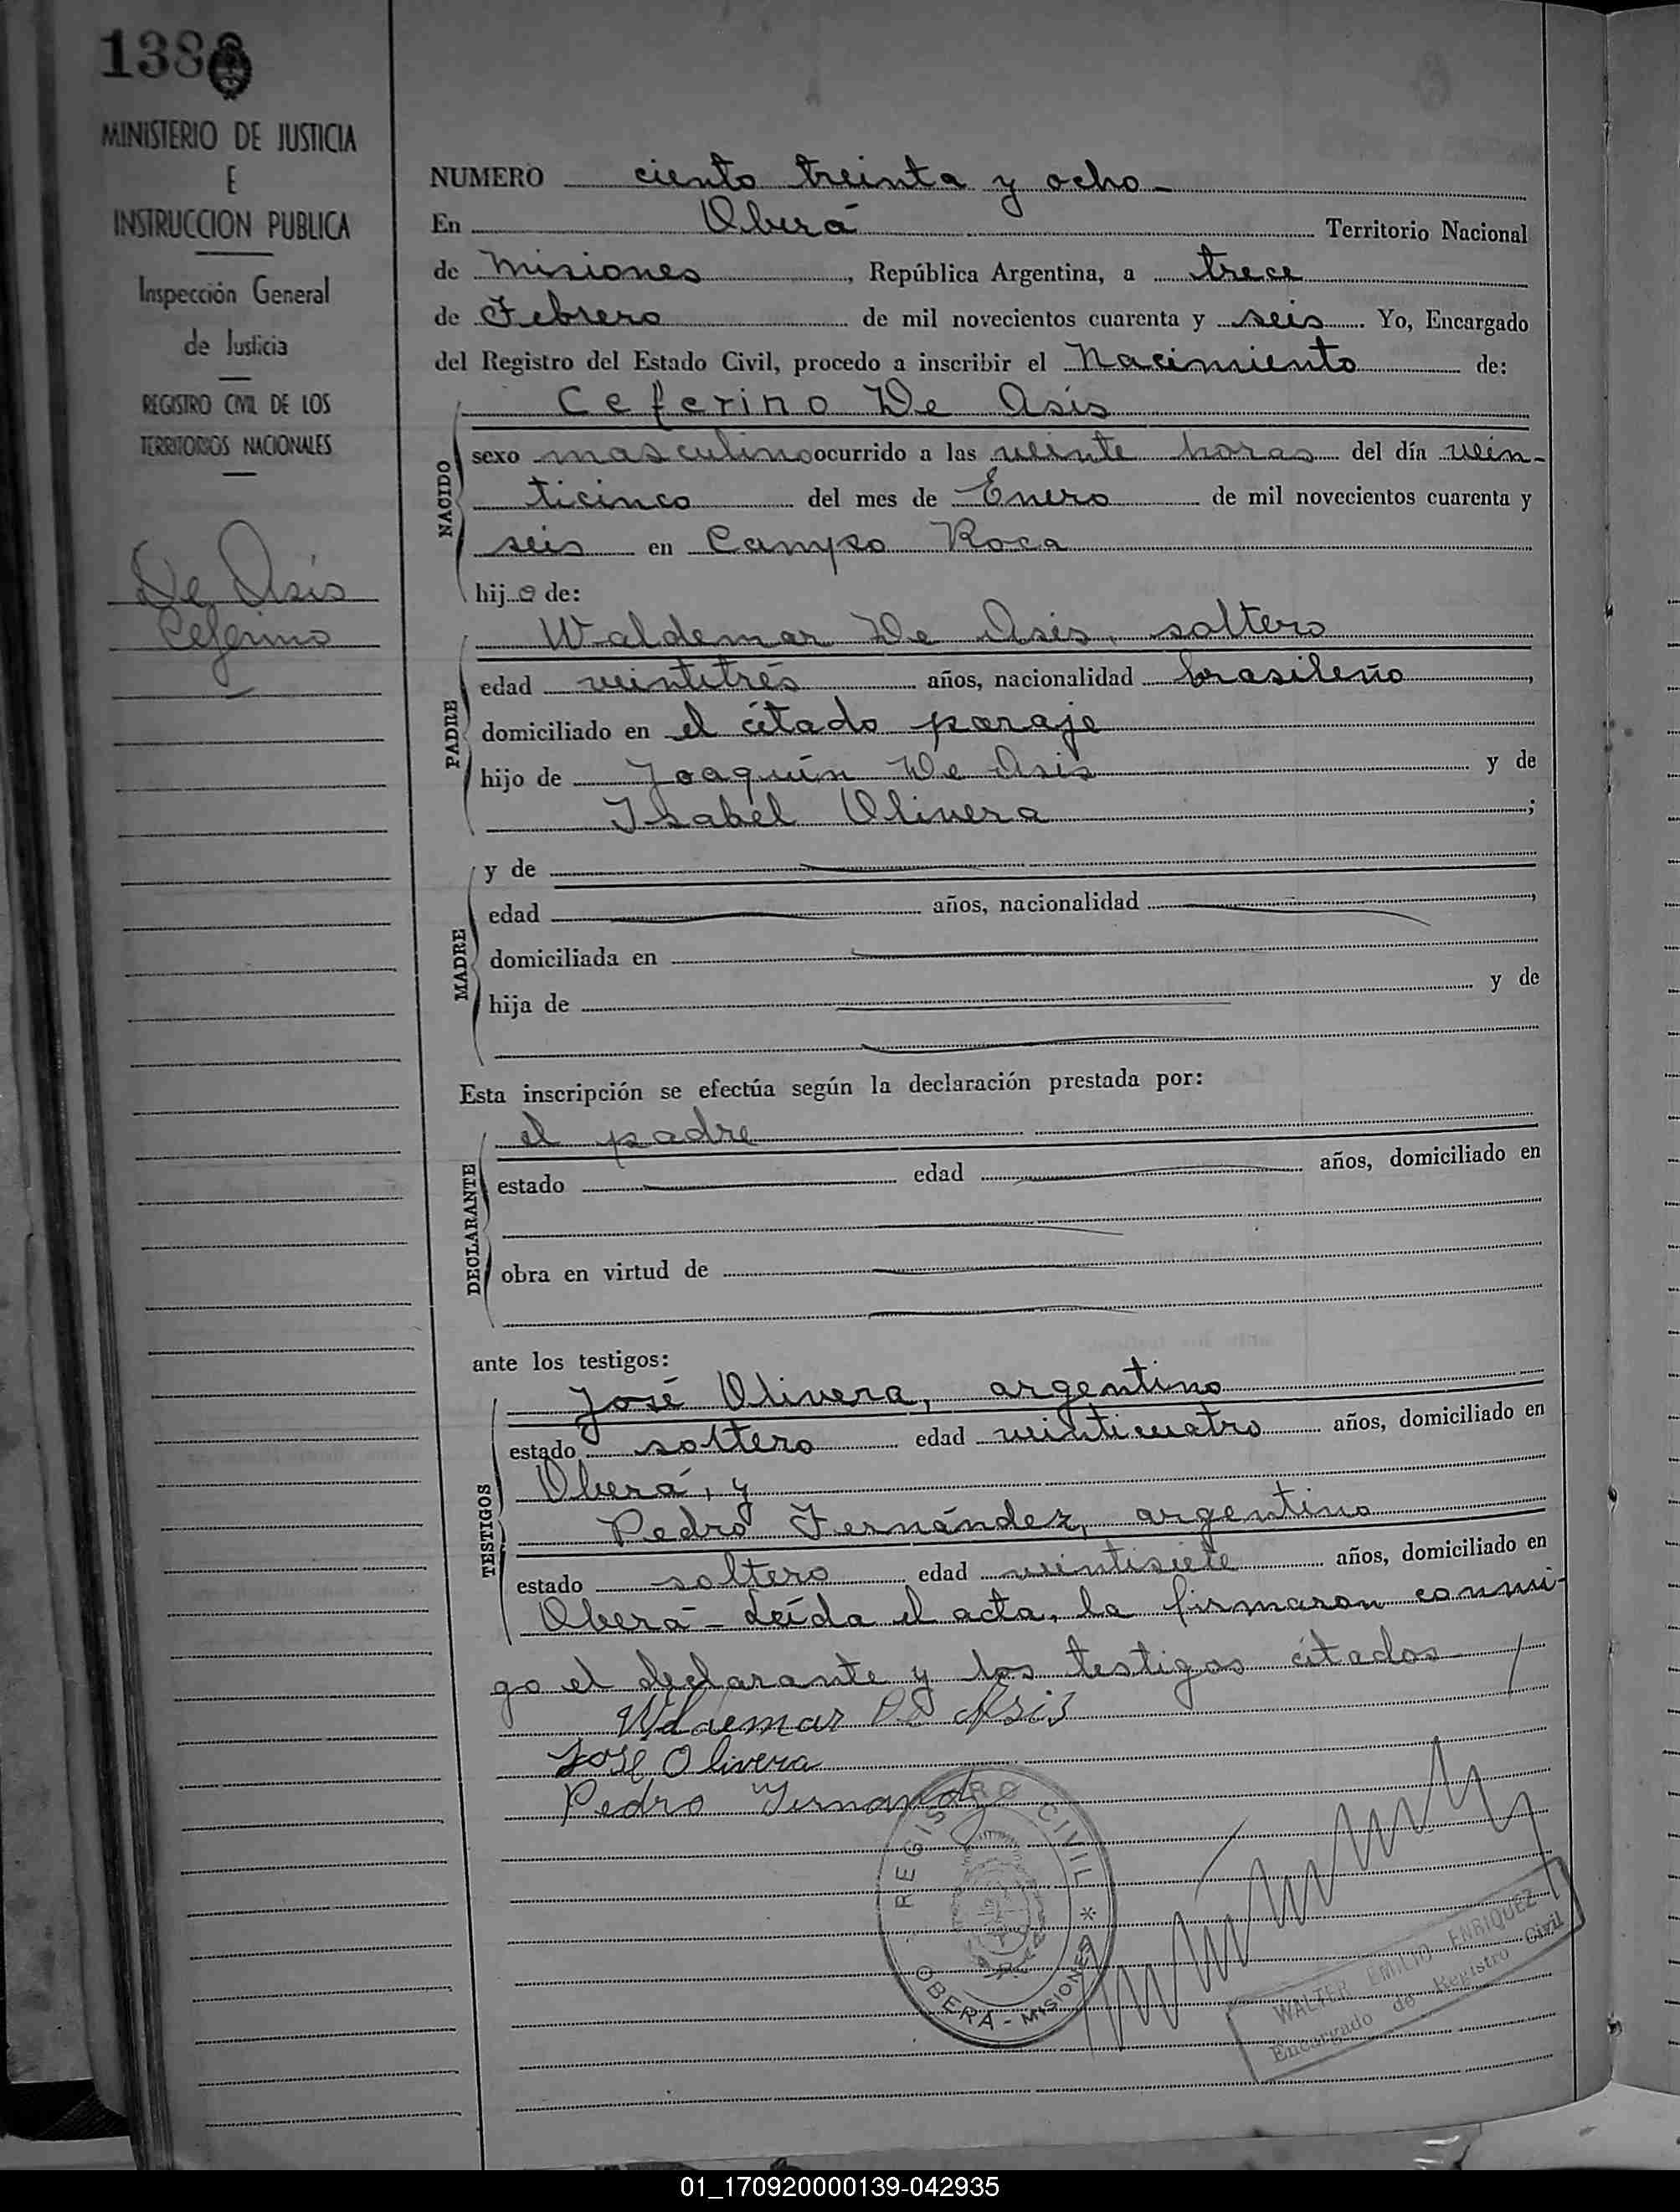 138
MINISTERIO DE JUSTICIA
E
INSTRUCCION PUBLICA
Inspección General
de Justicia
REGISTRO CIVIL DE LOS
TERRITORIOS NACIONALES
De Asís
Ceferino
NUMERO ciento treinta y ocho-
En Oberá Territorio Nacional
de Misiones, República Argentina, a trece
de Febrero de mil novecientos cuarenta y seis. Yo, Encargado
del Registro del Estado Civil, procedo a inscribir el Nacimiento de:
NACIDO
Ceferino De Asís
sexo masculino ocurrido a las veinte horas del día vein-
ticinco del mes de Enero de mil novecientos cuarenta y
seis en Campo Roca
hijo de:
PADRE
Waldemar De Asis, soltero
edad veintitrés años, nacionalidad brasileño,
domiciliado en el citado paraje
hijo de Joaquín De Asis y de
Isabel Olivera;
MADRE
y de
edad años, nacionalidad ,
domiciliada en
hija de y de
Esta inscripción se efectúa según la declaración prestada por:
DECLARANTE
el padre
estado edad años, domiciliado en
obra en virtud de
ante los testigos:
TESTIGOS
José Olivera, argentino
estado soltero edad veinticuatro años, domiciliado en
Oberá, y
Pedro Fernández, argentino
estado soltero edad veintisiete años, domiciliado en
Oberá- Leída el acta, la firmaron conmi-
go el declarante y los testigos citados
Waldemar De Asis
Jose Olivera
Pedro Fernandez
REGISTRO CIVIL
OBERA - MISIONES
WALTER EMILIO ENRIQUEZ
Encargado de Registro Civil
01_170920000139-042935